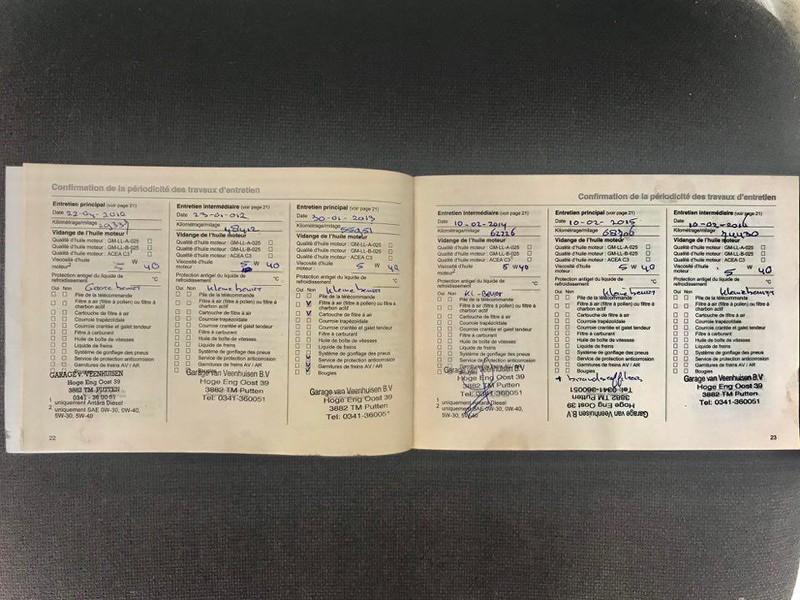 Confirmation de la périodicité des travaux d'entretien
Entretien principal (voir page 21)
Date 22-04-2010
Kilométrage/milage
Vidange de l'huile moteur
Qualité d'huile moteur: GM-LL-A-025
Qualité d'huile moteur: GM-LL-B-025
Qualité d'huile moteur: ACEA C3
Viscosité d'huile
moteur: 5 W 40
Protection antigel du liquide de
refroidissement: °C
Oui Non Groote beurt
Pile de la télécommande
Filtre à air (filtre à pollens) ou filtre à
charbon actif
Cartouche de filtre à air
Courroie trapézoïdale
Courroie crantée et galet tendeur
Filtre à carburant
Huile de boîte de vitesses
Liquide de freins
Système de gonflage des pneus
Service de protection anticorrosion
Garnitures de freins AV / AR
GARAGE v. VEENHUISEN
Hoge Eng Oost 39
3882 TM PUTTEN
0341 - 36 00 51
1 uniquement Antara Diesel
2 uniquement SAE 0W-30, 0W-40,
5W-30, 5W-40
22
Entretien intermédiaire (voir page 21)
Date 23-01-012
Kilométrage/milage 48412
Vidange de l'huile moteur
Qualité d'huile moteur: GM-LL-A-025
Qualité d'huile moteur: GM-LL-B-025
Qualité d'huile moteur: ACEA C3
Viscosité d'huile
moteur: 5 W 40
Protection antigel du liquide de
refroidissement: °C
Oui Non kleine beurt
Pile de la télécommande
Filtre à air (filtre à pollens) ou filtre à
charbon actif
Cartouche de filtre à air
Courroie trapézoïdale
Courroie crantée et galet tendeur
Filtre à carburant
Huile de boîte de vitesses
Liquide de freins
Système de gonflage des pneus
Service de protection anticorrosion
Garnitures de freins AV / AR
Garage van Veenhuisen B.V
Hoge Eng Oost 39
3882 TM Putten
Tel: 0341-360051
Entretien principal (voir page 21)
Date 30-01-2013
Kilométrage/milage
Vidange de l'huile moteur
Qualité d'huile moteur: GM-LL-A-025
Qualité d'huile moteur: GM-LL-B-025
Qualité d'huile moteur: ACEA C3
Viscosité d'huile
moteur: 5 W 40
Protection antigel du liquide de
refroidissement: °C
Oui Non kleine beurt
Pile de la télécommande
Filtre à air (filtre à pollens) ou filtre à
charbon actif
Cartouche de filtre à air
Courroie trapézoïdale
Courroie crantée et galet tendeur
Filtre à carburant
Huile de boîte de vitesses
Liquide de freins
Système de gonflage des pneus
Service de protection anticorrosion
Garnitures de freins AV / AR
Bougies
Garage van Veenhuisen B.V
Hoge Eng Oost 39
3882 TM Putten
Tel: 0341-360051
Confirmation de la périodicité des travaux d'entretien
Entretien intermédiaire (voir page 21)
Date 10-02-2014
Kilométrage/milage 62726
Vidange de l'huile moteur
Qualité d'huile moteur: GM-LL-A-025
Qualité d'huile moteur: GM-LL-B-025
Qualité d'huile moteur: ACEA C3
Viscosité d'huile
moteur: 5 W 40
Protection antigel du liquide de
refroidissement: °C
Oui Non Kl-Beurt
Pile de la télécommande
Filtre à air (filtre à pollens) ou filtre à
charbon actif
Cartouche de filtre à air
Courroie trapézoïdale
Courroie crantée et galet tendeur
Filtre à carburant
Huile de boîte de vitesses
Liquide de freins
Système de gonflage des pneus
Service de protection anticorrosion
Garnitures de freins AV / AR
Garage van Veenhuisen B.V
Hoge Eng Oost 39
3882 TM Putten
Tel: 0341-360051
1 uniquement Antara Diesel
2 uniquement SAE 0W-30, 0W-40,
5W-30, 5W-40
Entretien principal (voir page 21)
Date 10-02-2015
Kilométrage/milage
Vidange de l'huile moteur
Qualité d'huile moteur: GM-LL-A-025
Qualité d'huile moteur: GM-LL-B-025
Qualité d'huile moteur: ACEA C3
Viscosité d'huile
moteur: 5 W 40
Protection antigel du liquide de
refroidissement: °C
Oui Non kleine beurt
Pile de la télécommande
Filtre à air (filtre à pollens) ou filtre à
charbon actif
Cartouche de filtre à air
Courroie trapézoïdale
Courroie crantée et galet tendeur
Filtre à carburant
Huile de boîte de vitesses
Liquide de freins
Système de gonflage des pneus
Service de protection anticorrosion
Garnitures de freins AV / AR
Bougies
Garage van Veenhuisen B.V
Hoge Eng Oost 39
3882 TM Putten
Tel: 0341-360051
Entretien intermédiaire (voir page 21)
Date 10-02-2016
Kilométrage/milage
Vidange de l'huile moteur
Qualité d'huile moteur: GM-LL-A-025
Qualité d'huile moteur: GM-LL-B-025
Qualité d'huile moteur: ACEA C3
Viscosité d'huile
moteur: 5 W 40
Protection antigel du liquide de
refroidissement: °C
Oui Non kleine beurt
Pile de la télécommande
Filtre à air (filtre à pollens) ou filtre à
charbon actif
Cartouche de filtre à air
Courroie trapézoïdale
Courroie crantée et galet tendeur
Filtre à carburant
Huile de boîte de vitesses
Liquide de freins
Système de gonflage des pneus
Service de protection anticorrosion
Garnitures de freins AV / AR
Garage van Veenhuisen B.V
Hoge Eng Oost 39
3882 TM Putten
Tel: 0341-360051
23